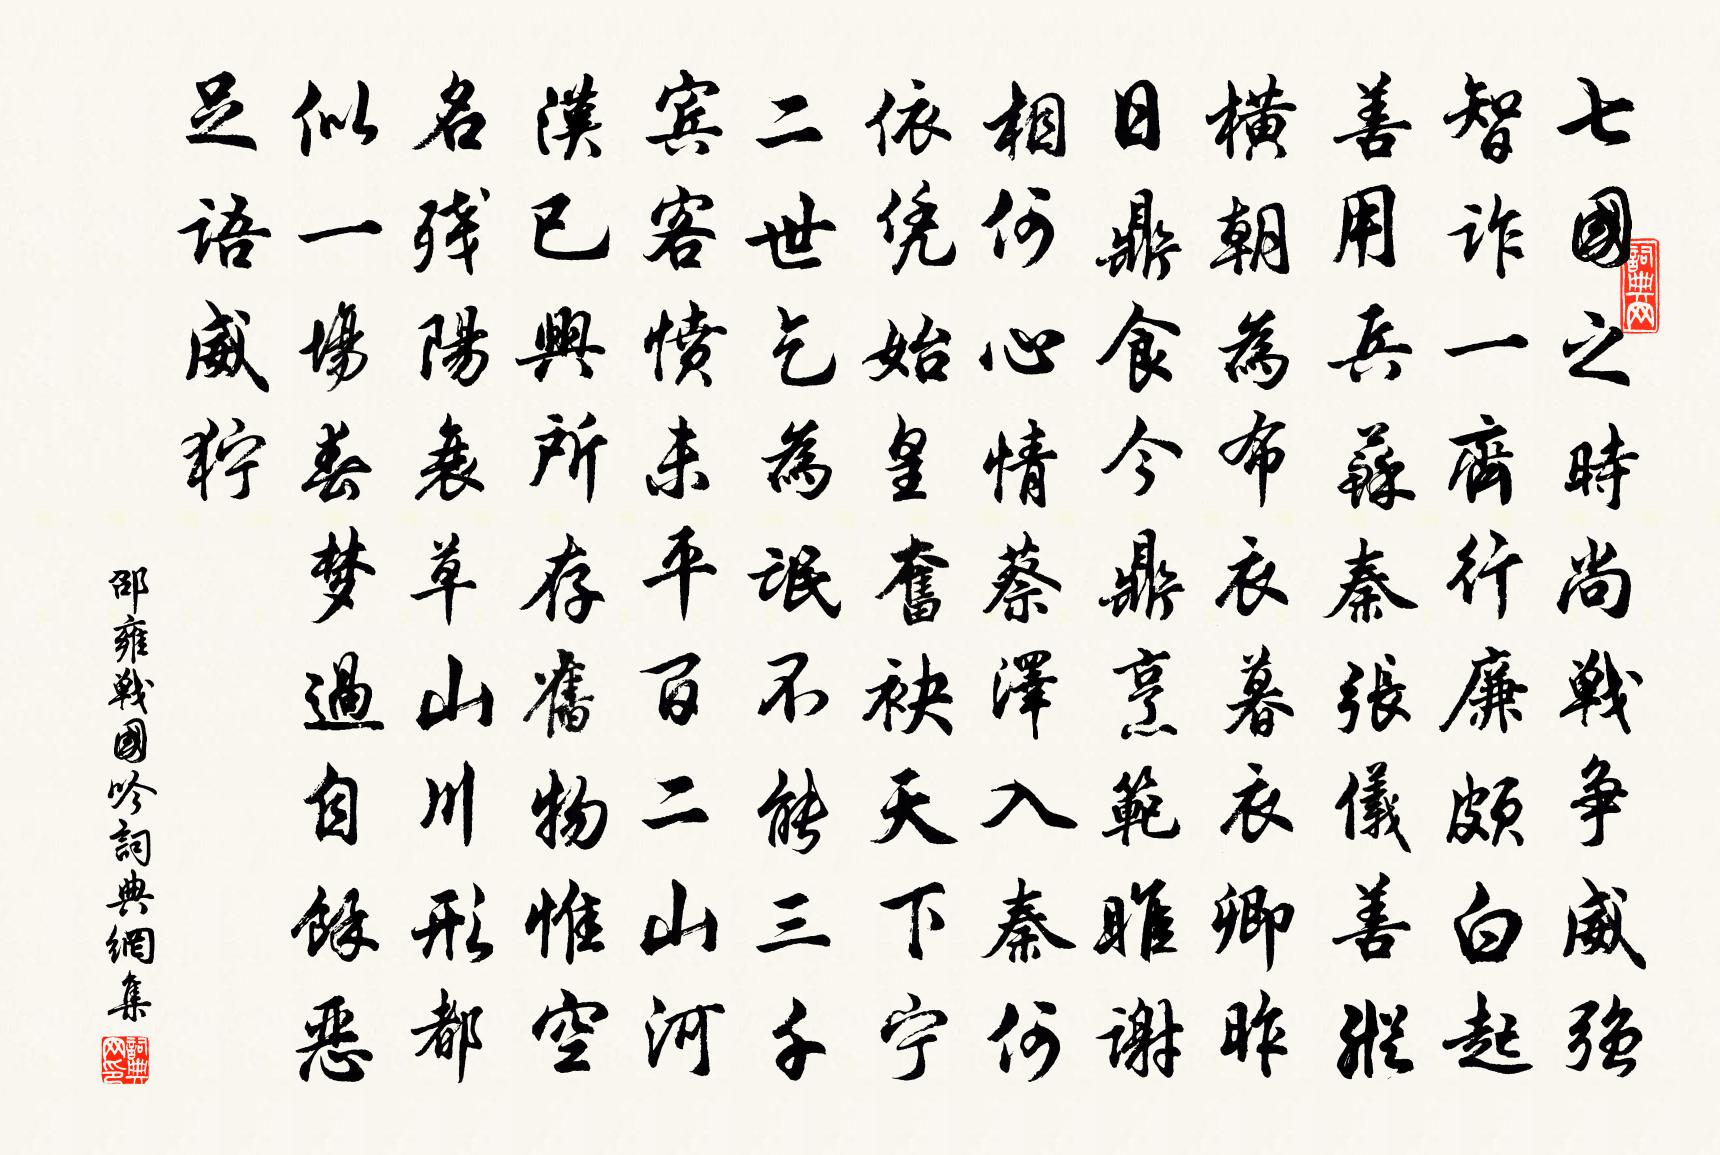 七國之時尚戰争威强
智詐一齊行廉頗白起
善用兵蘇秦張儀善縱
横朝為布衣暮衣卿昨
日鼎食今鼎烹範雎謝
相何心情蔡澤入秦何
依凭始皇奮袂天下宁
二世乞為氓不能三千
宾客憤未平百二山河
漢已興所存舊物惟空
名残陽衰草山川形都
似一場春梦過自餘惡
足语威狞
邵雍戰國吟詞典網集
詞典网
詞典网印